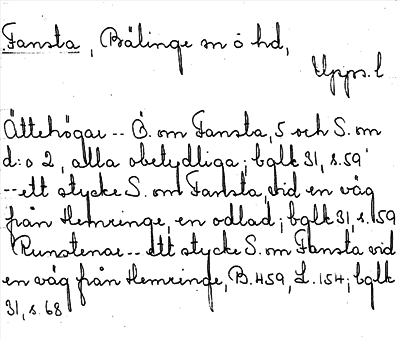 Fansta, Bälinge sn o hd,
Upps. l
Ättehögar -- Ö. om Fansta, 5 och S. om
d:o 2, alla obetydliga; bglk 31, s. 59
-- ett stycke S. om Fansta, vid en väg
från Hemringe, en odlad; bglk 31, s. 59
Runstenar -- ett stycke S. om Fansta vid
en väg från Hemringe, B. 459, L. 154; bglk
31, s. 68